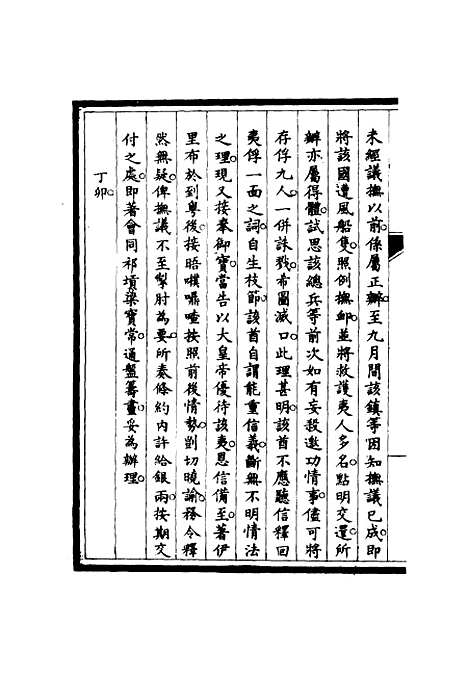 未經議撫以前。係屬正辦。至九月間該鎮等因知撫議已成。即
將該國遭風船隻。照例撫卹。並將救護夷人多名。點明交還。所
辦亦屬得體。試思該總兵等前次如有妄殺邀功情事。儘可將
存俘九人。一併誅戮。希圖滅口。此理甚明。該酋不應聽信釋回
夷俘一面之詞。自生枝節。該酋自謂能重信義。斷無不明情法
之理。現又接奉御寶當告以大皇帝優待該夷。恩信備至。著伊
里布於到粵後。接晤嘆囒喳按照前後情勢。剴切曉諭。務令釋
然無疑。俾撫議不至掣肘為要。所奏條約內許給銀兩。按期交
付之處。即著會同祁𡎴梁寶常。通盤籌畫。妥為辦理。
丁卯。